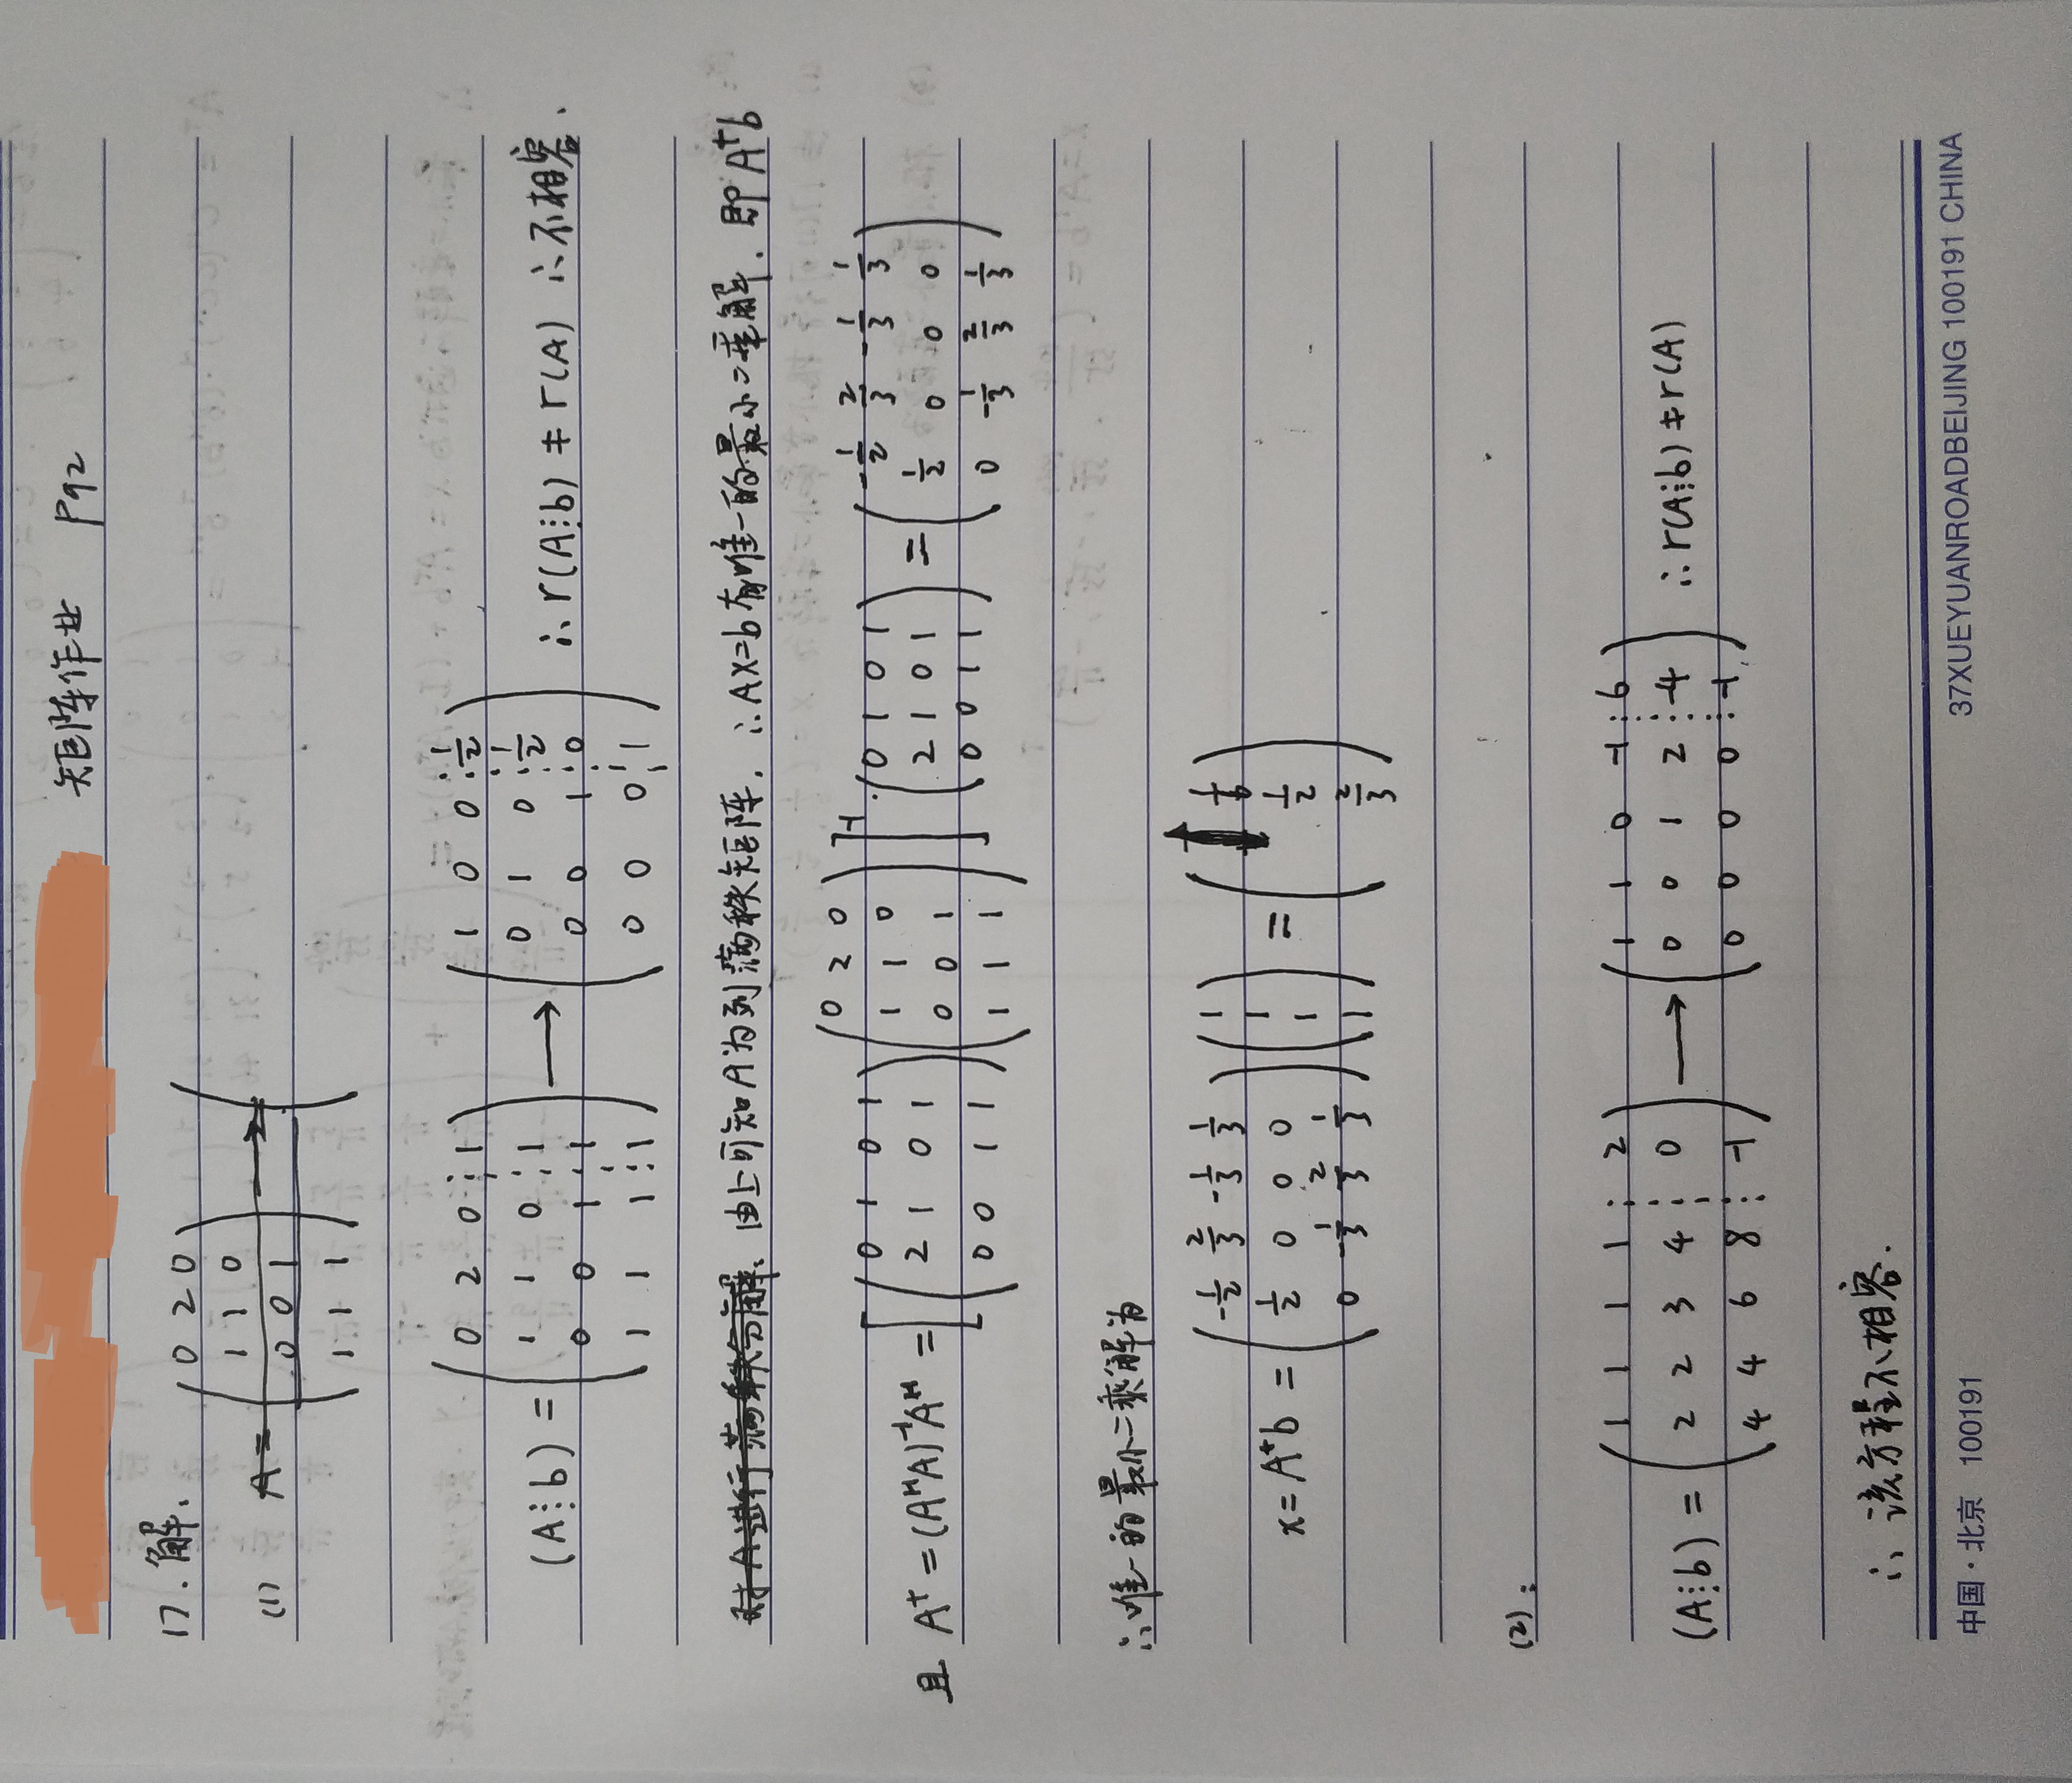 矩阵作业 P92
17.解.
(1) A= (0 2 0
1 1 0
0 0 1
1 1 1) → (
(A⋮b) = (0 2 0 ⋮ 1
1 1 0 ⋮ 1
0 0 1 ⋮ 1
1 1 1 ⋮ 1) → (1 0 0 ⋮ 1/2
0 1 0 ⋮ 1/2
0 0 1 ⋮ 0
0 0 0 ⋮ 1) ∴ r(A⋮b) ≠ r(A) ∴不相容.
对A进行满秩分解. 由上可知A为列满秩矩阵. ∴AX=b有唯一的最小二乘解. 即A⁺b
且 A⁺ = (AᴴA)⁻¹Aᴴ = [(0 1 0 1
2 1 0 1
0 0 1 1)(0 2 0
1 1 0
0 0 1
1 1 1)]⁻¹ · (0 1 0 1
2 1 0 1
0 0 1 1) = (-1/2 2/3 -1/3 1/3
1/2 0 0 0
0 -1/3 2/3 1/3)
∴唯一的最小二乘解为
x=A⁺b = (-1/2 2/3 -1/3 1/3
1/2 0 0 0
0 -1/3 2/3 1/3)(1
1
1
1) = (1/6
1/2
2/3)
(2):
(A⋮b) = (1 1 1 1 ⋮ 2
2 2 3 4 ⋮ 0
4 4 6 8 ⋮ -1) → (1 1 0 -1 ⋮ 6
0 0 1 2 ⋮ -4
0 0 0 0 ⋮ -1) ∴ r(A⋮b) ≠ r(A)
∴ 该方程不相容.
中国·北京 100191 37XUEYUANROADBEIJING 100191 CHINA